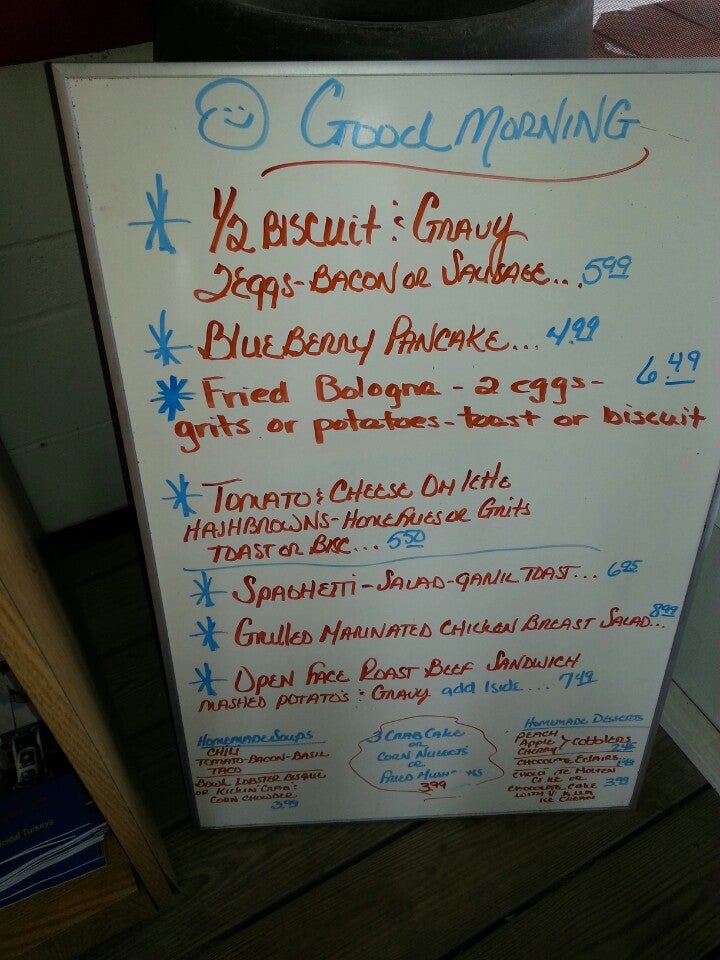 Good MORNING
1/2 BISCUIT & GRAVY
2 EGGS - BACON OR SAUSAGE... 5.99
BLUEBERRY PANCAKE... 4.99
Fried Bologna - 2 eggs - 6.49
grits or potatoes - toast or biscuit
TOMATO & CHEESE OMLETTE
HASHBROWNS - HOMEFRIES OR Grits
TOAST OR BISC... 5.50
SPAGHETTI - SALAD - GARLIC TOAST... 6.95
GRILLED MARINATED CHICKEN BREAST SALAD... 8.99
OPEN FACE ROAST BEEF SANDWICH
MASHED POTATO'S & GRAVY add 1 side... 7.49
HOMEMADE SOUPS
CHILI
TOMATO-BACON-BASIL
TACO
BOWL LOBSTER BISQUE
OR KICKIN' CRAB &
CORN CHOWDER
3.99
3 CRAB CAKE
OR
CORN NUGGETS
OR
FRIED MUSH
3.99
HOMEMADE DESSERTS
PEACH
Apple
CHERRY
COBBLERS
2.45
CHOCOLATE ECLAIRS
MOLTEN
CAKE OR
CHOCOLATE CAKE 3.99
WITH
ICE CREAM
cidal Turkeys